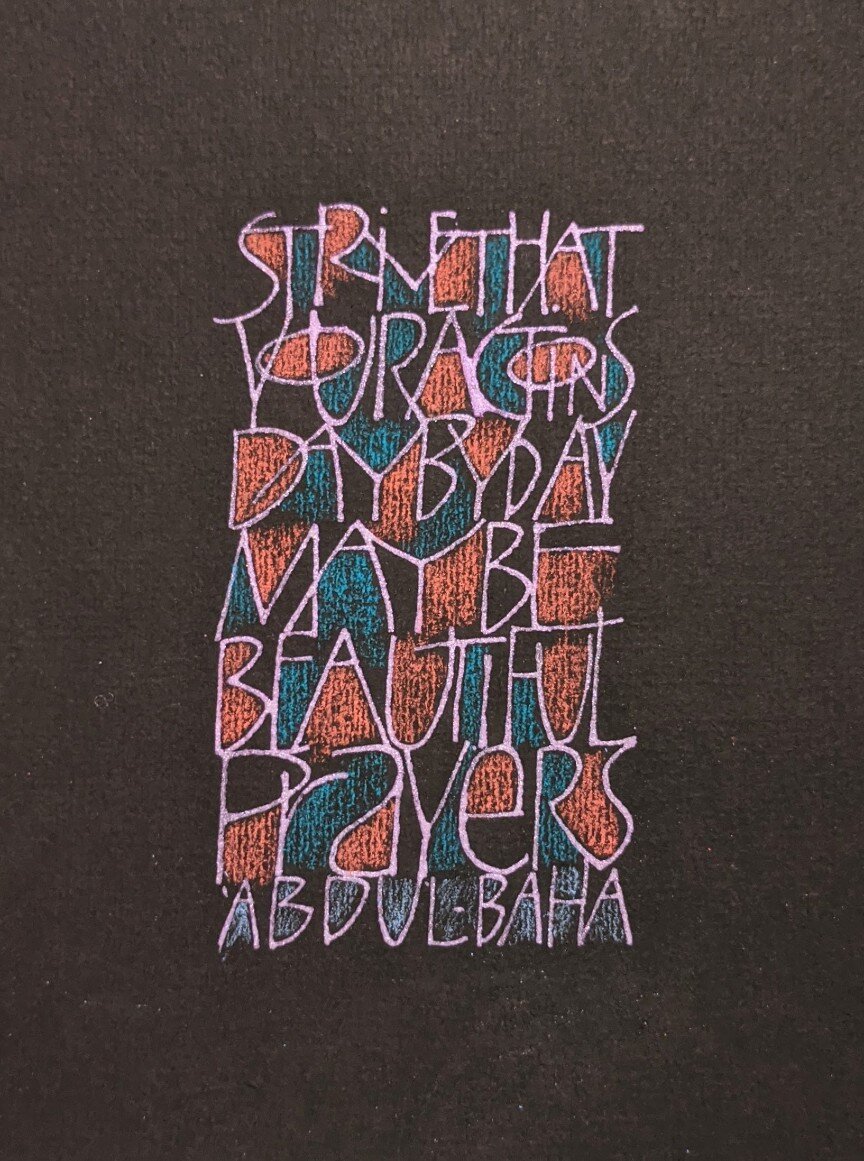 STRiVE THAT
YOUR ACTIONS
DAY BY DAY
MAY BE
BEAUTIFUL
PrayerS
'ABDU'L-BAHA